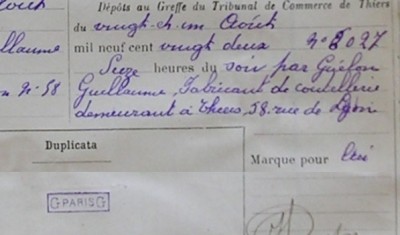 Dépôts au Greffe du Tribunal de Commerce de Thiers
du vingt-et-un Août
mil neuf cent vingt deux n° 8027
Seize heures du soir par
Guillaume, Fabricant de coutellerie
demeurant à Thiers, 58, rue de Lyon
llaume
n N° 58
Duplicata
Marque pour
GPARISG